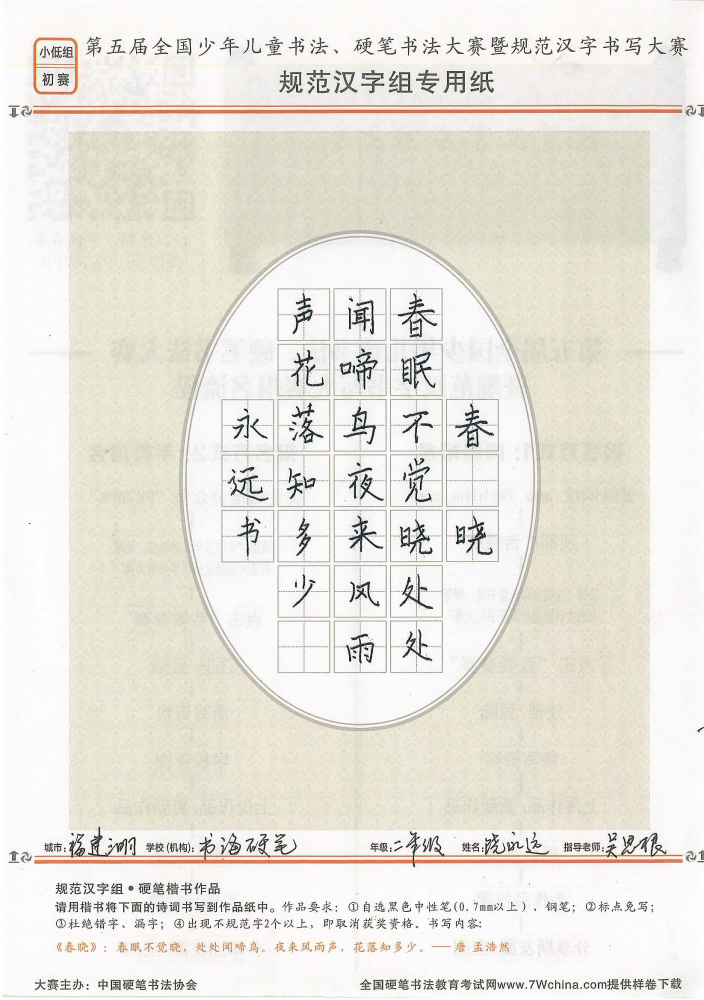 小低组
初赛
第五届全国少年儿童书法、硬笔书法大赛暨规范汉字书写大赛
规范汉字组专用纸
春晓
春眠不觉晓处处
闻啼鸟夜来风雨
声花落知多少
永远书
城市: 福建 学校(机构): 书海硬笔 年级: 二年级 姓名: 饶永远 指导老师: 吴思根
规范汉字组●硬笔楷书作品
请用楷书将下面的诗词书写到作品纸中。作品要求:①自选黑色中性笔(0.7mm以上)、钢笔;②标点免写;
③杜绝错字、漏字;④出现不规范字2个以上,即取消获奖资格。书写内容:
《春晓》:春眠不觉晓,处处闻啼鸟。夜来风雨声,花落知多少。——唐 孟浩然
大赛主办:中国硬笔书法协会
全国硬笔书法教育考试网www.7Wchina.com提供样卷下载